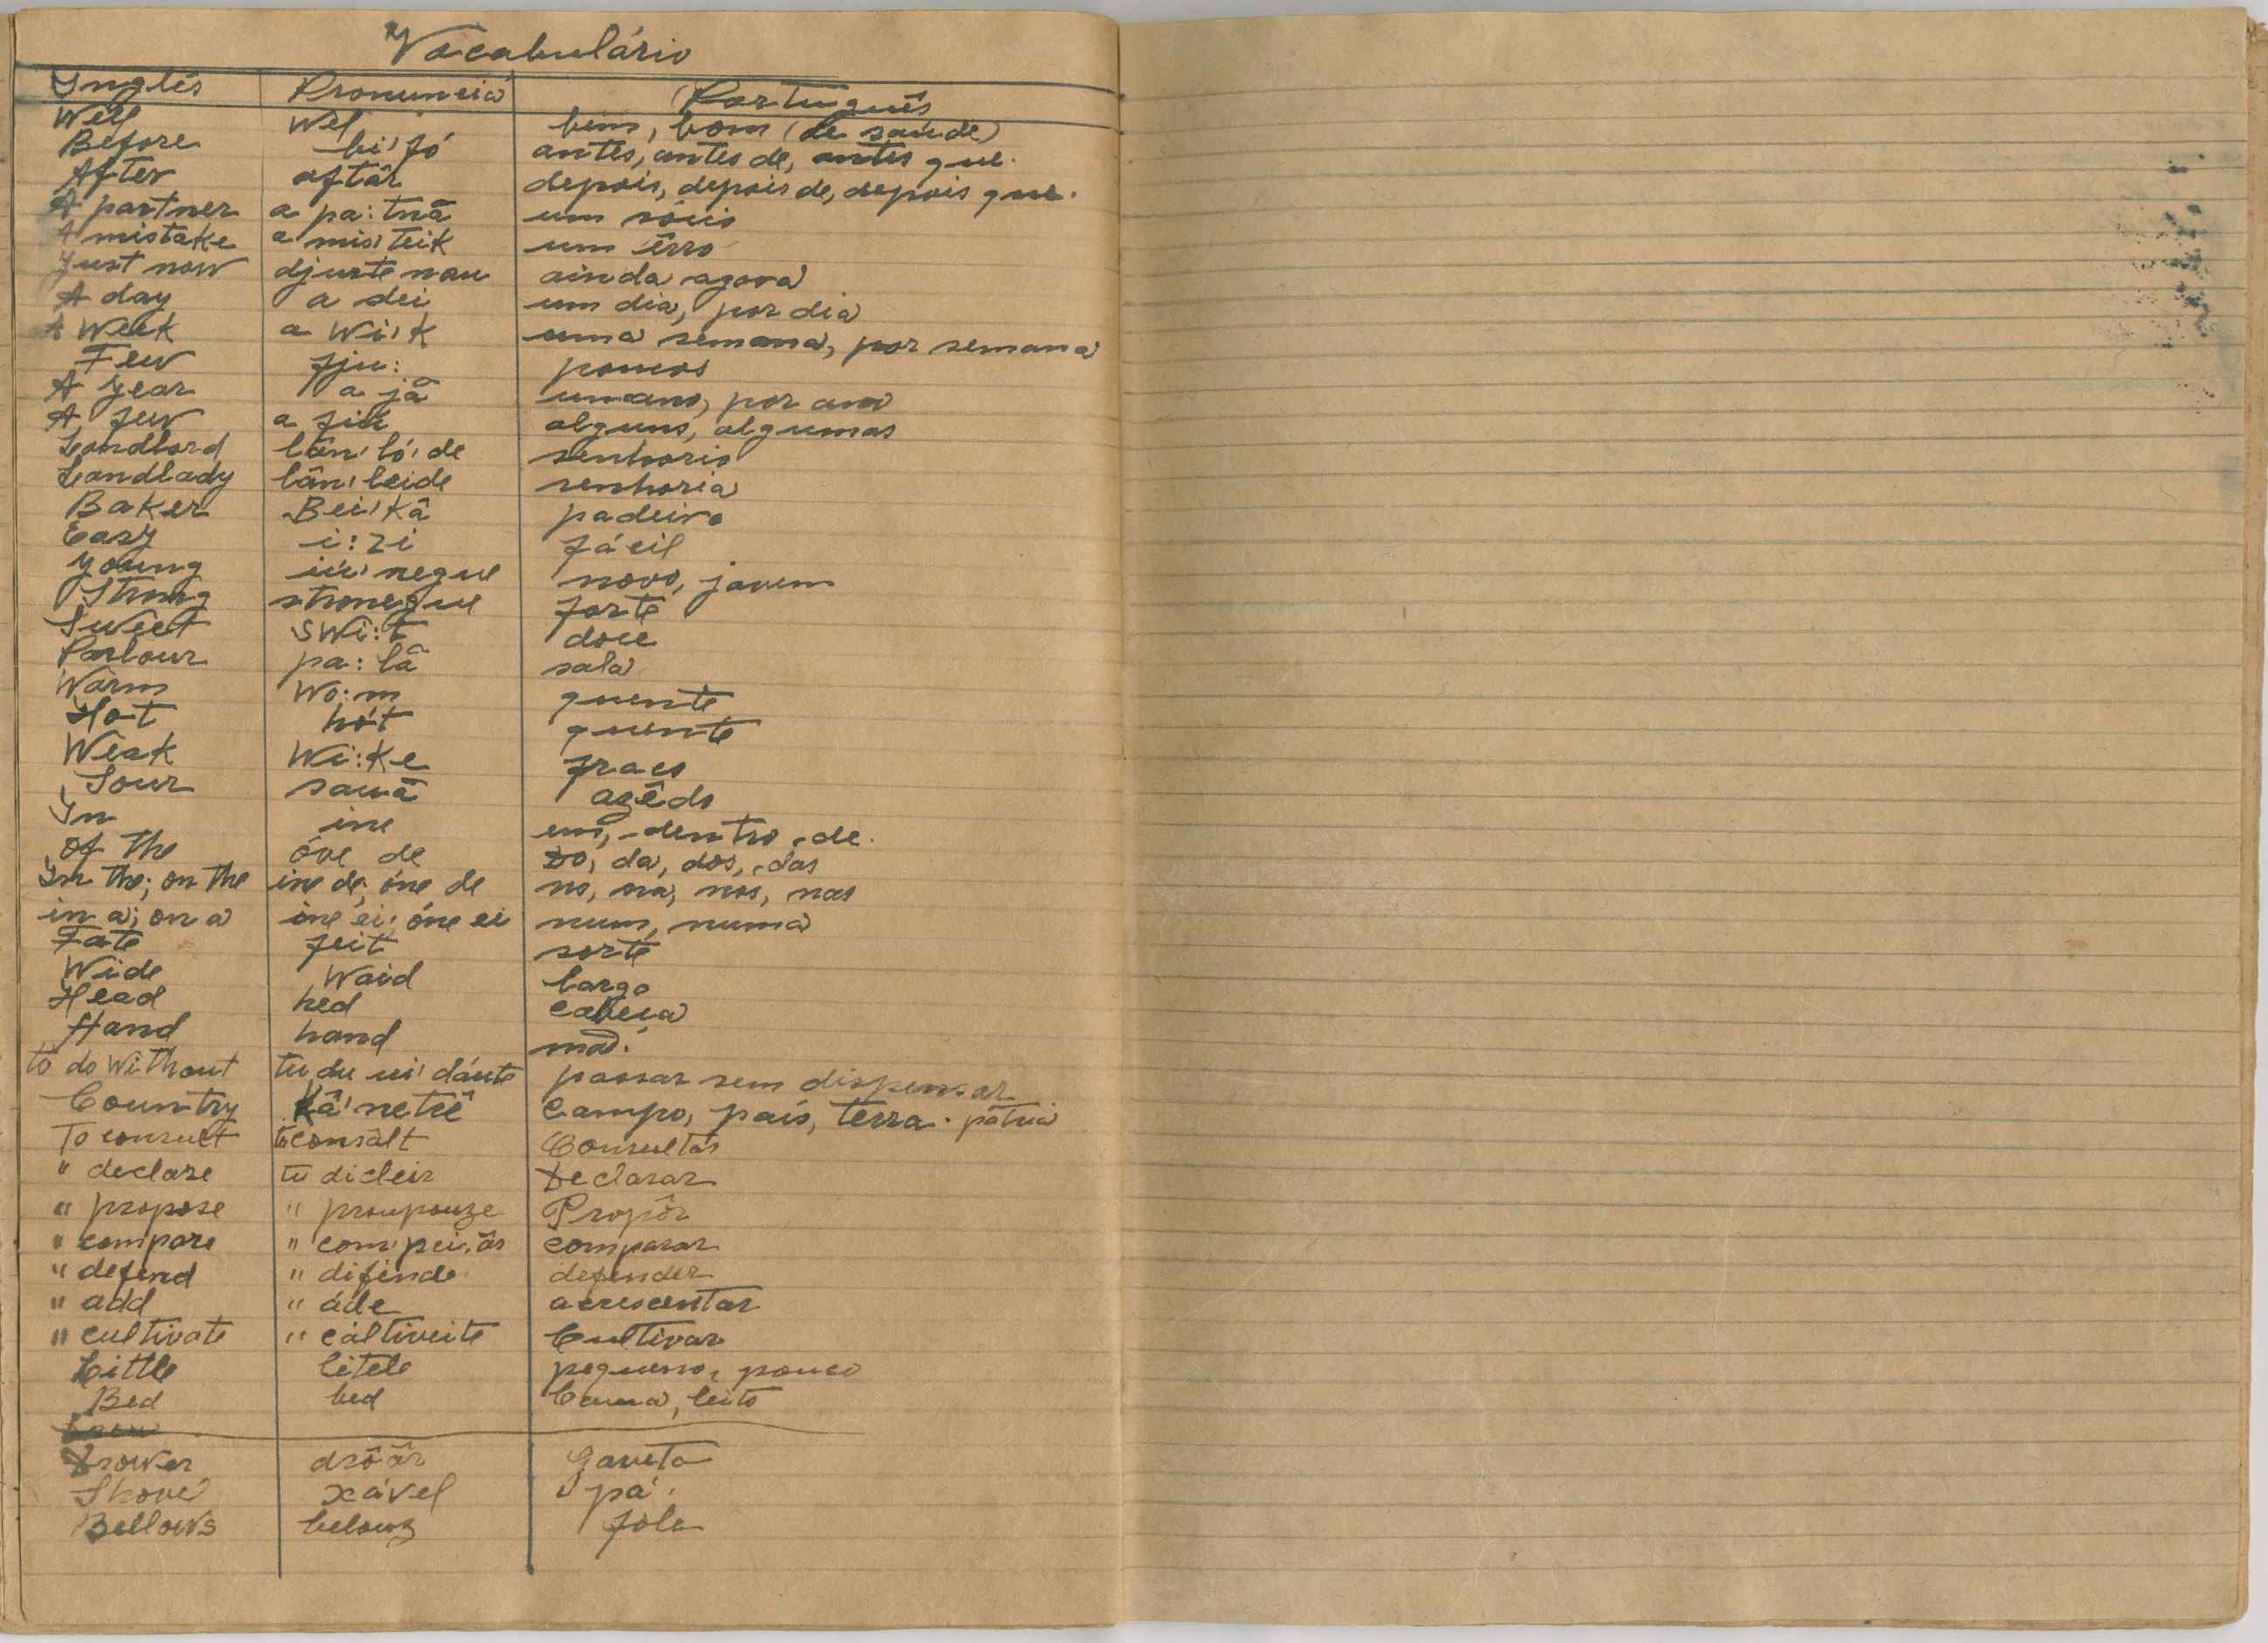 Vocabulário
Inglês Pronuncia Português
Well Wel bem, bom (de saúde)
Before bi'fó antes, antes de, antes que.
After aftâr depois, depois de, depois que.
A partner a pa:tnâ um sócio
A mistake a mis'teik um êrro
Just now djuste nau ainda agora
A day a dei um dia, por dia
A Week a Wi'k uma semana, por semana
Few fju: poucos
A year a jâ um ano, por ano
A few a fiú alguns, algumas
Landlord lân'ló'de senhorio
Landlady lân'leide senhoria
Baker Bei'kâ padeiro
Easy i:zi fácil
Young iú'negue novo, jovem
Strong stronegue forte
Sweet swi:t doce
Parlour pa:lâ sala
Warm Wo:m quente
Hot hót quente
Weak Wi:ke fraco
Sour sauâ azêdo
In ine em, dentro de.
Of the óve de Do, da, dos, das
In the; on the ine de; óne de no, na, nos, nas
in a; on a ine ei; óne ei num, numa
Fate feit sorte
Wide Waid largo
Head hed cabeça
Hand hand mão.
to do Without tu du ui'dáute passar sem dispensar
Country Kâ'netrê Campo, país, terra. pátria
To consult tu consâlt Consultar
" declare tu dicleir Declarar
" propose " proupouze Propôr
" compare " com'pei'âr comparar
" defend " difende defender
" add " áde acrescentar
" cultivate " cáltiveite Cultivar
Little litele pequeno, pouco
Bed bed Cama, leito
Drower drôâr Gaveta
Shovel xável pá.
Bellows belouz fole